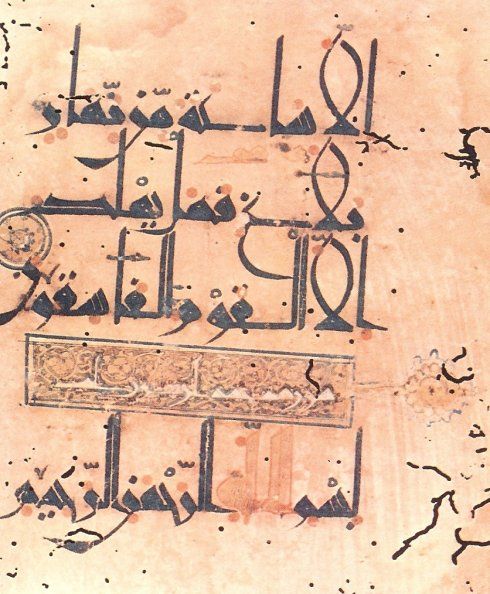 الا ساعة مّن نّهار
بلاغ فهل يهلك
الا القوم الفاسقون
سورة محمد
بسم الله الرّحمن الرّحيم